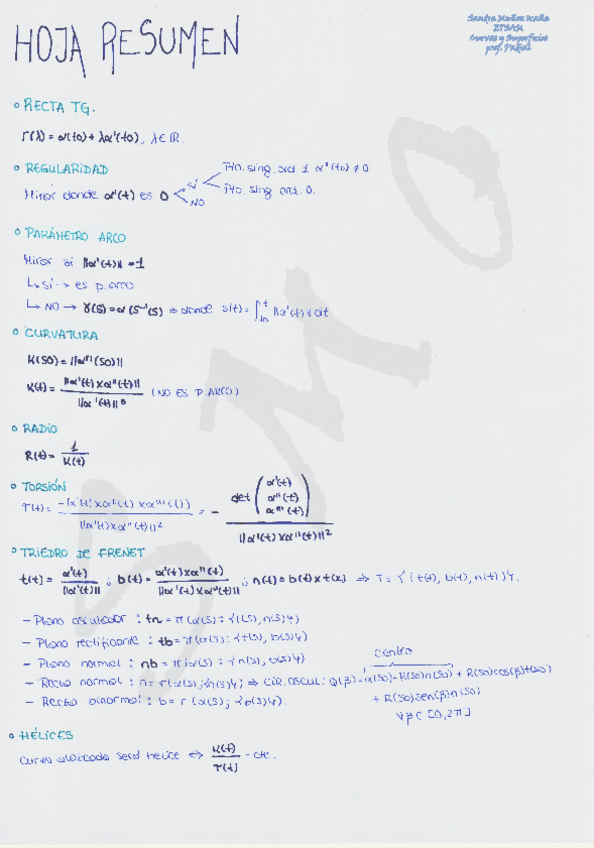 HOJA RESUMEN
Curvas y Superficies
• RECTA TG.
r(λ) = α(t0) + λα'(t0), λ ∈ IR.
• REGULARIDAD
Mirar donde α'(t) es 0 < SÍ < Pto. sing. ord 1. α''(t0) ≠ 0
Pto. sing. ord. 0.
NO
• PARÁMETRO ARCO
Mirar si ||α'(t)|| = 1
↳ Sí → es p. arco
↳ NO → γ(s) = α(S⁻¹(s) ⇒ donde s(t) = ∫ₜ₀ᵗ ||α'(t)|| dt
• CURVATURA
K(s0) = ||α''(s0)||
K(t) = ||α'(t) x α''(t)|| / ||α'(t)||³ (NO ES P. ARCO)
• RADIO
R(t) = 1 / K(t)
• TORSIÓN
τ(t) = -[α'(t) x α''(t) x α'''(t)] / ||α'(t) x α''(t)||² = - det (α'(t) α''(t) α'''(t)) / ||α'(t) x α''(t)||²
• TRIEDRO DE FRENET
t(t) = α'(t) / ||α'(t)|| ; b(t) = α'(t) x α''(t) / ||α'(t) x α''(t)|| ; n(t) = b(t) x t(t) ⇒ T = {t(t), b(t), n(t)}.
- Plano osculador : tn = π(α(s) : {t(s), n(s)})
- Plano rectificante : tb = π(α(s) : {t(s), b(s)})
- Plano normal : nb = π(α(s) : {n(s), b(s)})
centro
- Recta normal : n = r(α(s); {n(s)}) ⇒ CIR. OSCUL: Q(β) = α(s0) + R(s0)n(s0) + R(s0)cos(β)t(s0)
+ R(s0)sen(β)n(s0)
∀β ∈ [0, 2π]
- Recta binormal : b = r(α(s); {b(s)})
• HÉLICES
Curva alabeada será hélice ⇔ K(t) / τ(t) = cte.
SMO